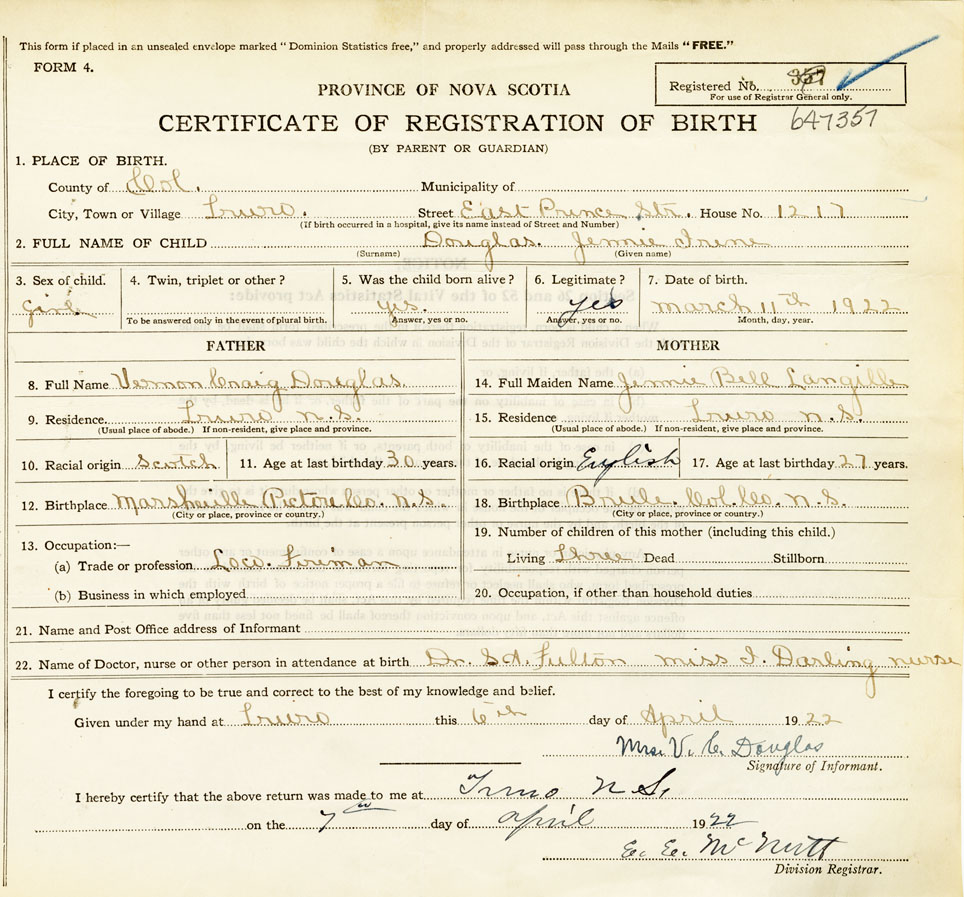 This form if placed in an unsealed envelope marked "Dominion Statistics free," and properly addressed will pass through the Mails "FREE."
FORM 4.
Registered No. 357
For use of Registrar General only.
PROVINCE OF NOVA SCOTIA
CERTIFICATE OF REGISTRATION OF BIRTH 647357
(BY PARENT OR GUARDIAN)
1. PLACE OF BIRTH.
County of Col. Municipality of
City, Town or Village Truro. Street East Prince Str. House No. 1217
(If birth occurred in a hospital, give its name instead of Street and Number)
2. FULL NAME OF CHILD Douglas. Jennie Irene
(Surname) (Given name)
3. Sex of child. 4. Twin, triplet or other? 5. Was the child born alive? 6. Legitimate? 7. Date of birth.
girl yes. yes March 11th 1922
To be answered only in the event of plural birth. Answer, yes or no. Answer, yes or no. Month, day, year.
FATHER MOTHER
8. Full Name Vernon Craig Douglas. 14. Full Maiden Name Jennie Bell Langille
9. Residence. Truro N.S. 15. Residence Truro N.S.
(Usual place of abode.) If non-resident, give place and province. (Usual place of abode.) If non-resident, give place and province.
10. Racial origin Scotch 11. Age at last birthday 30 years. 16. Racial origin English 17. Age at last birthday 27 years.
12. Birthplace Marshville Pictou Co. N.S. 18. Birthplace Brule. Col. Co. N.S.
(City or place, province or country.) (City or place, province or country.)
13. Occupation:— 19. Number of children of this mother (including this child.)
(a) Trade or profession Loco. Fireman Living Three Dead Stillborn
(b) Business in which employed 20. Occupation, if other than household duties
21. Name and Post Office address of Informant
22. Name of Doctor, nurse or other person in attendance at birth Dr. S.A. Fulton Miss I. Darling nurse
I certify the foregoing to be true and correct to the best of my knowledge and belief.
Given under my hand at Truro this 6th day of April 1922
Mrs. V. C. Douglas
Signature of Informant.
I hereby certify that the above return was made to me at Truro N.S.
on the 7th day of April 1922
E. E. McNutt
Division Registrar.